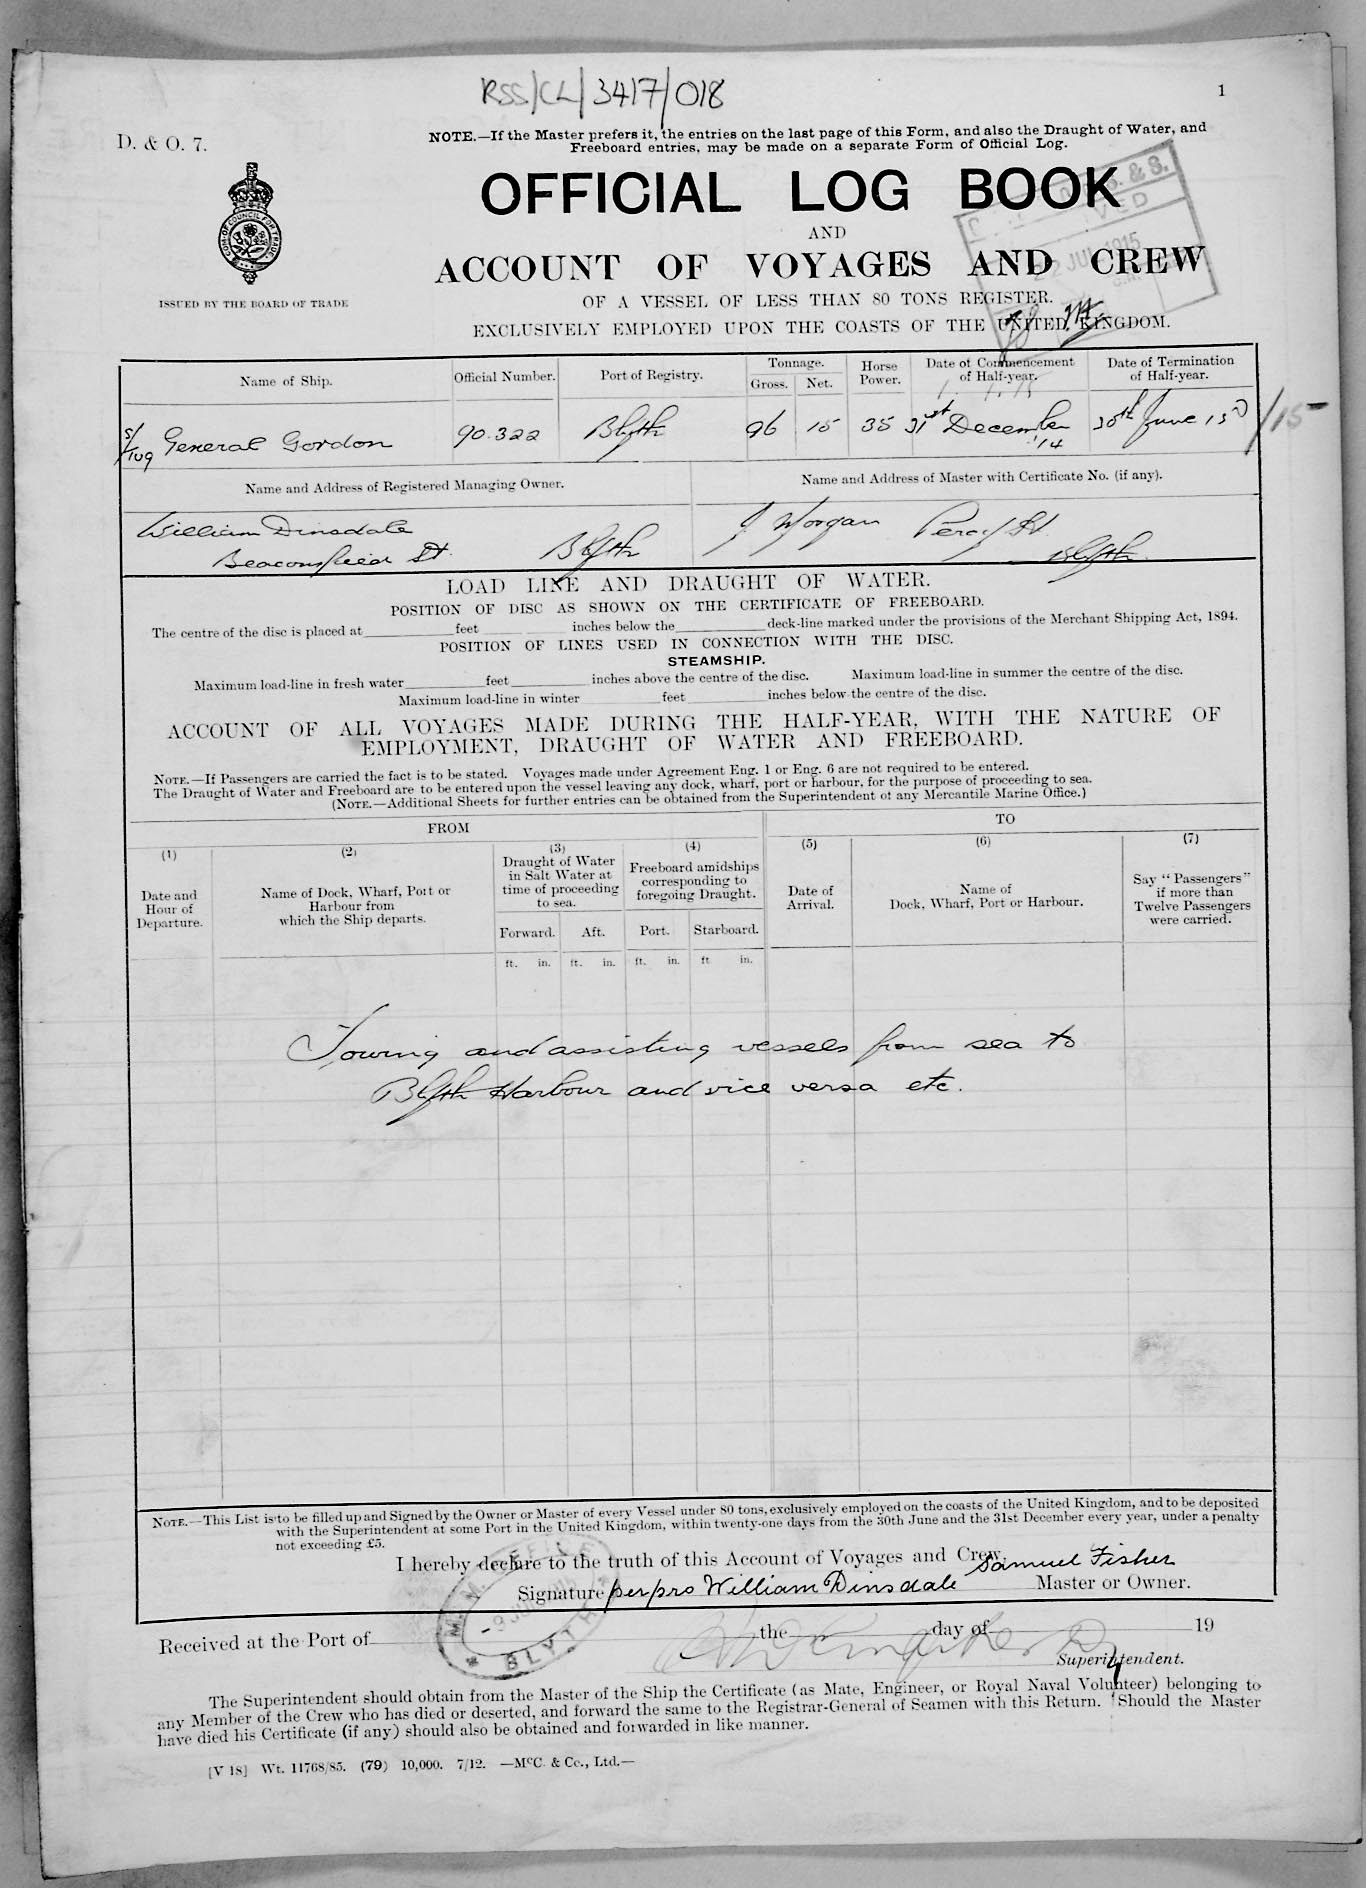 RSS/CL/3417/018
1
D. & O. 7.
NOTE.—If the Master prefers it, the entries on the last page of this Form, and also the Draught of Water, and
Freeboard entries, may be made on a separate Form of Official Log.
OFFICIAL LOG BOOK
AND
ACCOUNT OF VOYAGES AND CREW
OF A VESSEL OF LESS THAN 80 TONS REGISTER.
EXCLUSIVELY EMPLOYED UPON THE COASTS OF THE UNITED KINGDOM.
ISSUED BY THE BOARD OF TRADE
& S.
JUL 1915
Name of Ship.
Official Number.
Port of Registry.
Tonnage.
Gross. Net.
Horse
Power.
Date of Commencement
of Half-year.
Date of Termination
of Half-year.
S/Tug General Gordon
90.322
Blyth
96
15
35
31st December '14
30th June 15
/15
Name and Address of Registered Managing Owner.
Name and Address of Master with Certificate No. (if any).
William Dinsdale
Beaconsfield St. Blyth
J Morgan Percy St
Blyth.
LOAD LINE AND DRAUGHT OF WATER.
POSITION OF DISC AS SHOWN ON THE CERTIFICATE OF FREEBOARD.
The centre of the disc is placed at feet inches below the deck-line marked under the provisions of the Merchant Shipping Act, 1894.
POSITION OF LINES USED IN CONNECTION WITH THE DISC.
STEAMSHIP.
Maximum load-line in fresh water feet inches above the centre of the disc. Maximum load-line in summer the centre of the disc.
Maximum load-line in winter feet inches below the centre of the disc.
ACCOUNT OF ALL VOYAGES MADE DURING THE HALF-YEAR, WITH THE NATURE OF
EMPLOYMENT, DRAUGHT OF WATER AND FREEBOARD.
NOTE.—If Passengers are carried the fact is to be stated. Voyages made under Agreement Eng. 1 or Eng. 6 are not required to be entered.
The Draught of Water and Freeboard are to be entered upon the vessel leaving any dock, wharf, port or harbour, for the purpose of proceeding to sea.
(NOTE.—Additional Sheets for further entries can be obtained from the Superintendent of any Mercantile Marine Office.)
FROM
TO
(1)
Date and
Hour of
Departure.
(2)
Name of Dock, Wharf, Port or
Harbour from
which the Ship departs.
(3)
Draught of Water
in Salt Water at
time of proceeding
to sea.
Forward. Aft.
ft. in. ft. in.
(4)
Freeboard amidships
corresponding to
foregoing Draught.
Port. Starboard.
ft. in. ft in.
(5)
Date of
Arrival.
(6)
Name of
Dock, Wharf, Port or Harbour.
(7)
Say "Passengers"
if more than
Twelve Passengers
were carried.
Towing and assisting vessels from sea to
Blyth Harbour and vice versa etc.
NOTE.—This List is to be filled up and Signed by the Owner or Master of every Vessel under 80 tons, exclusively employed on the coasts of the United Kingdom, and to be deposited
with the Superintendent at some Port in the United Kingdom, within twenty-one days from the 30th June and the 31st December every year, under a penalty
not exceeding £5.
I hereby declare to the truth of this Account of Voyages and Crew.
Samuel Fisher
Signature per pro William Dinsdale Master or Owner.
BLYTH
Received at the Port of the day of 19
Superintendent.
The Superintendent should obtain from the Master of the Ship the Certificate (as Mate, Engineer, or Royal Naval Volunteer) belonging to
any Member of the Crew who has died or deserted, and forward the same to the Registrar-General of Seamen with this Return. Should the Master
have died his Certificate (if any) should also be obtained and forwarded in like manner.
[V 18] Wt. 11768/85. (79) 10,000. 7/12. —McC. & Co., Ltd.—